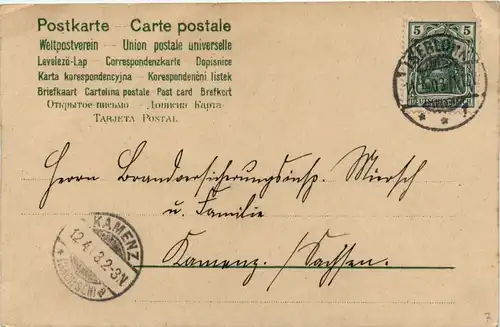 Postkarte — Carte postale
Weltpostverein — Union postale universelle
Levelezö-Lap — Correspondenzkarte — Dopisnice
Karta korespondencyjna — Korespondenční listek
Briefkaart — Cartolina postale — Post card — Brefkort
Открытое письмо — Дописна Карта
Tarjeta Postal
5 5
Herrn Brandversicherungsinsp. Miersch
u. Familie
Kamenz. / Sachsen.
KAMENZ
12.4. 3.2-3N
(SACHSEN)